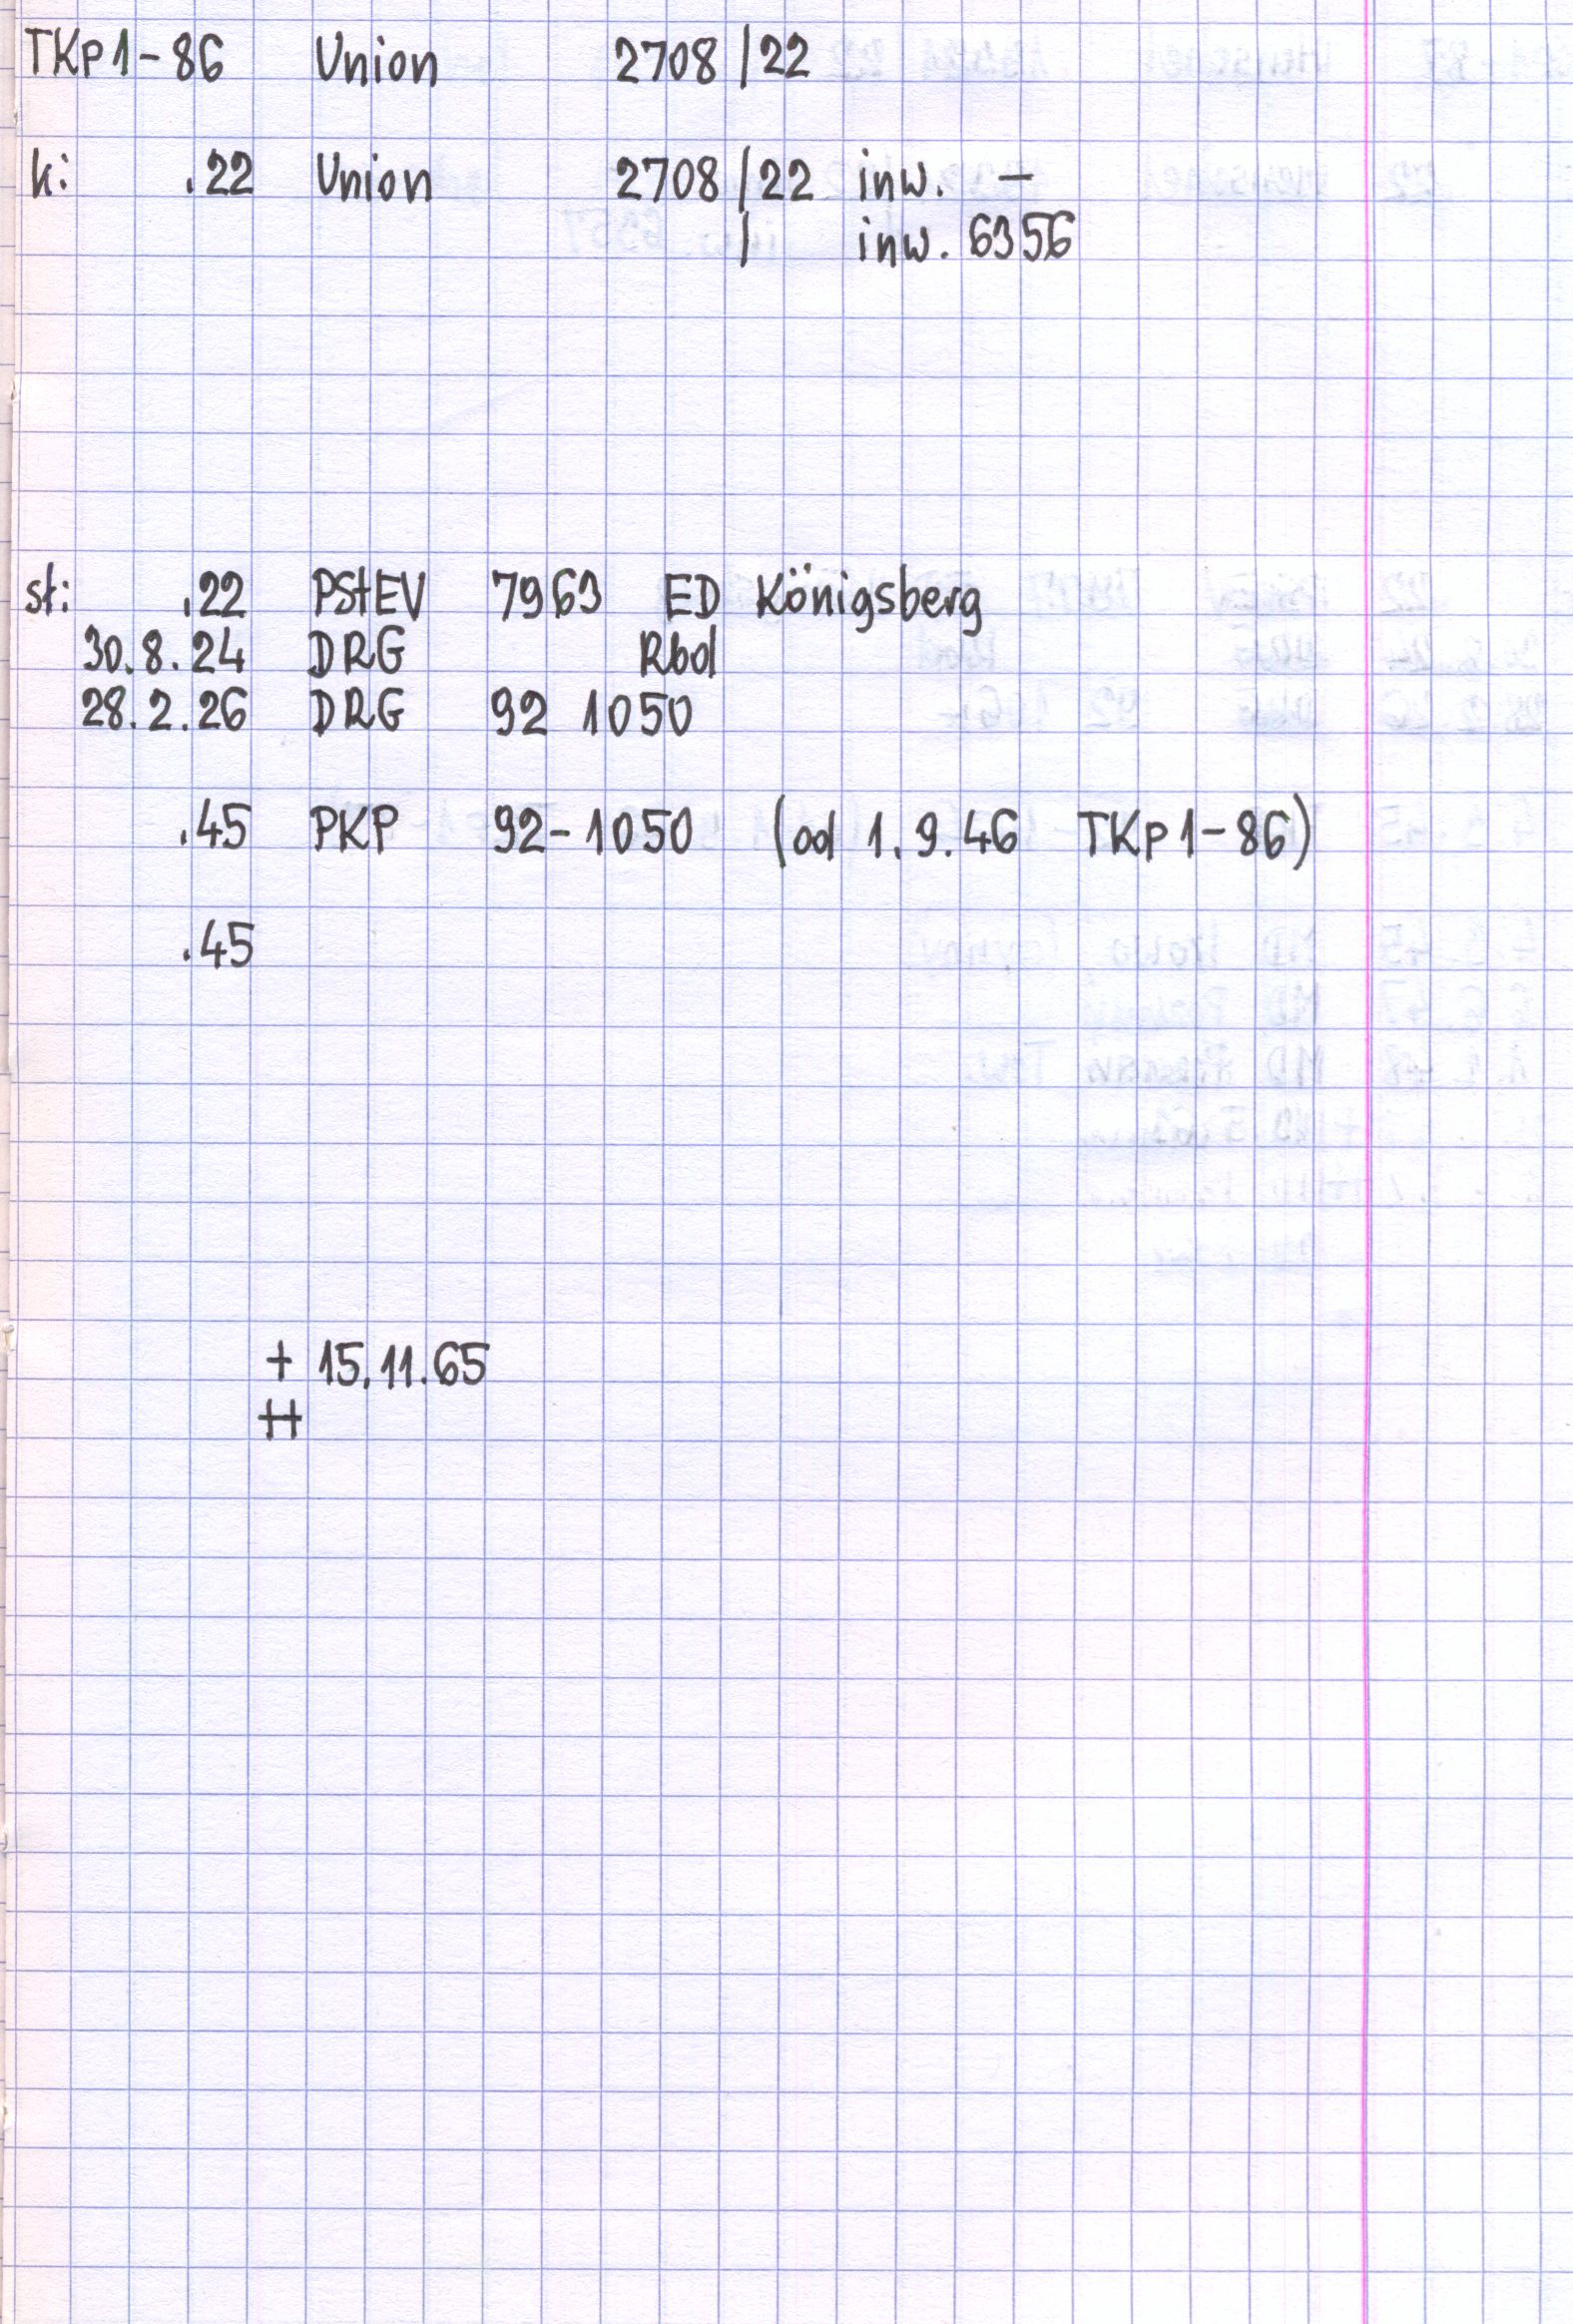 TKp1-86 Union 2708/22
k: .22 Union 2708/22 inw. -
/ inw. 6356
st: .22 PStEV 7963 ED Königsberg
30.8.24 DRG Rbd
28.2.26 DRG 92 1050
.45 PKP 92-1050 (od 1.9.46 TKp1-86)
.45
+ 15.11.65
++